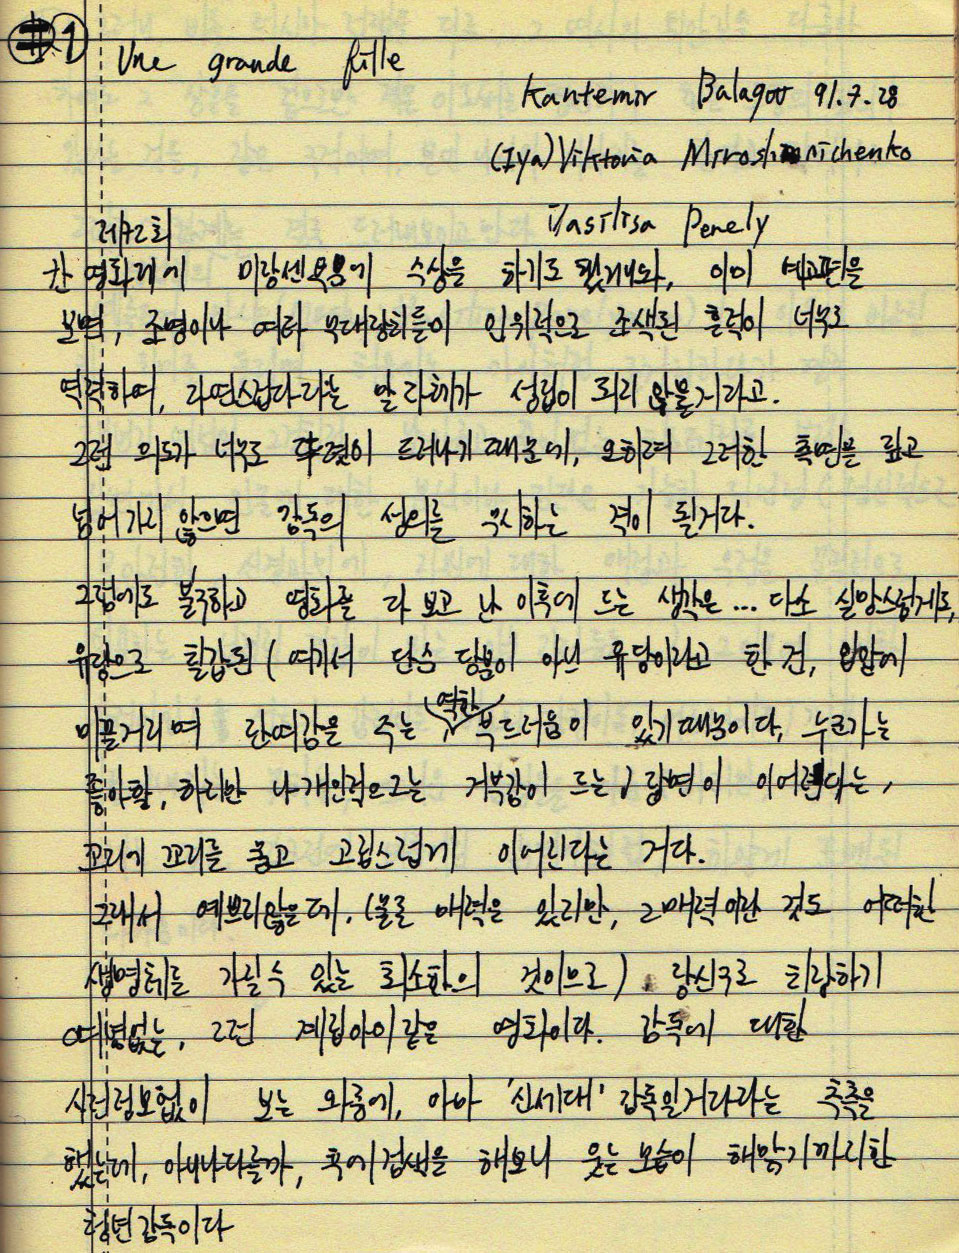 #1
Une grande fille
Kantemir Balagov 91.7.28
(Iya) Viktoria Miroshnichenko
Vasilisa Perely
제72회
칸 영화제에 미장센 부문에 수상을 하기도 했거니와, 이미 예고편을
보면, 조명이나 여타 무대장치들이 인위적으로 조색된 흔적이 너무도
역력하여, 자연스럽다라는 말 자체가 성립이 되지 않을거라고.
그런 의도가 너무도 뚜렷이 드러나기 때문에, 오히려 그러한 측면을 짚고
넘어가지 않으면 감독의 성의를 무시하는 격이 될거다.
그럼에도 불구하고 영화를 다 보고 난 이후에 드는 생각은 ... 다소 실망스럽게도,
유당으로 칠갑된 (여기서 단순 당분이 아닌 유당이라고 한 건, 입안에
미끌거리며 잔여감을 주는 역한 부드러움이 있기 때문이다, 누군가는
좋아할, 하지만 나 개인적으로는 거부감이 드는) 장면이 이어진다는,
꼬리에 꼬리를 물고 고집스럽게 이어진다는 거다.
그래서 예쁘지않은데, (물론 매력은 있지만, 그 매력이란 것도 어떠한
생명체를 가질 수 있는 최소한의 것이므로) 당신구로 치장하기
여념없는, 그런 계집아이 같은 영화이다. 감독에 대한
사전정보없이 보는 와중에, 아마 '신세대' 감독일거라라는 추측을
했는데, 아니나다를까, 후에 검색을 해보니 웃는 모습이 해맑기까지한
청년 감독이다